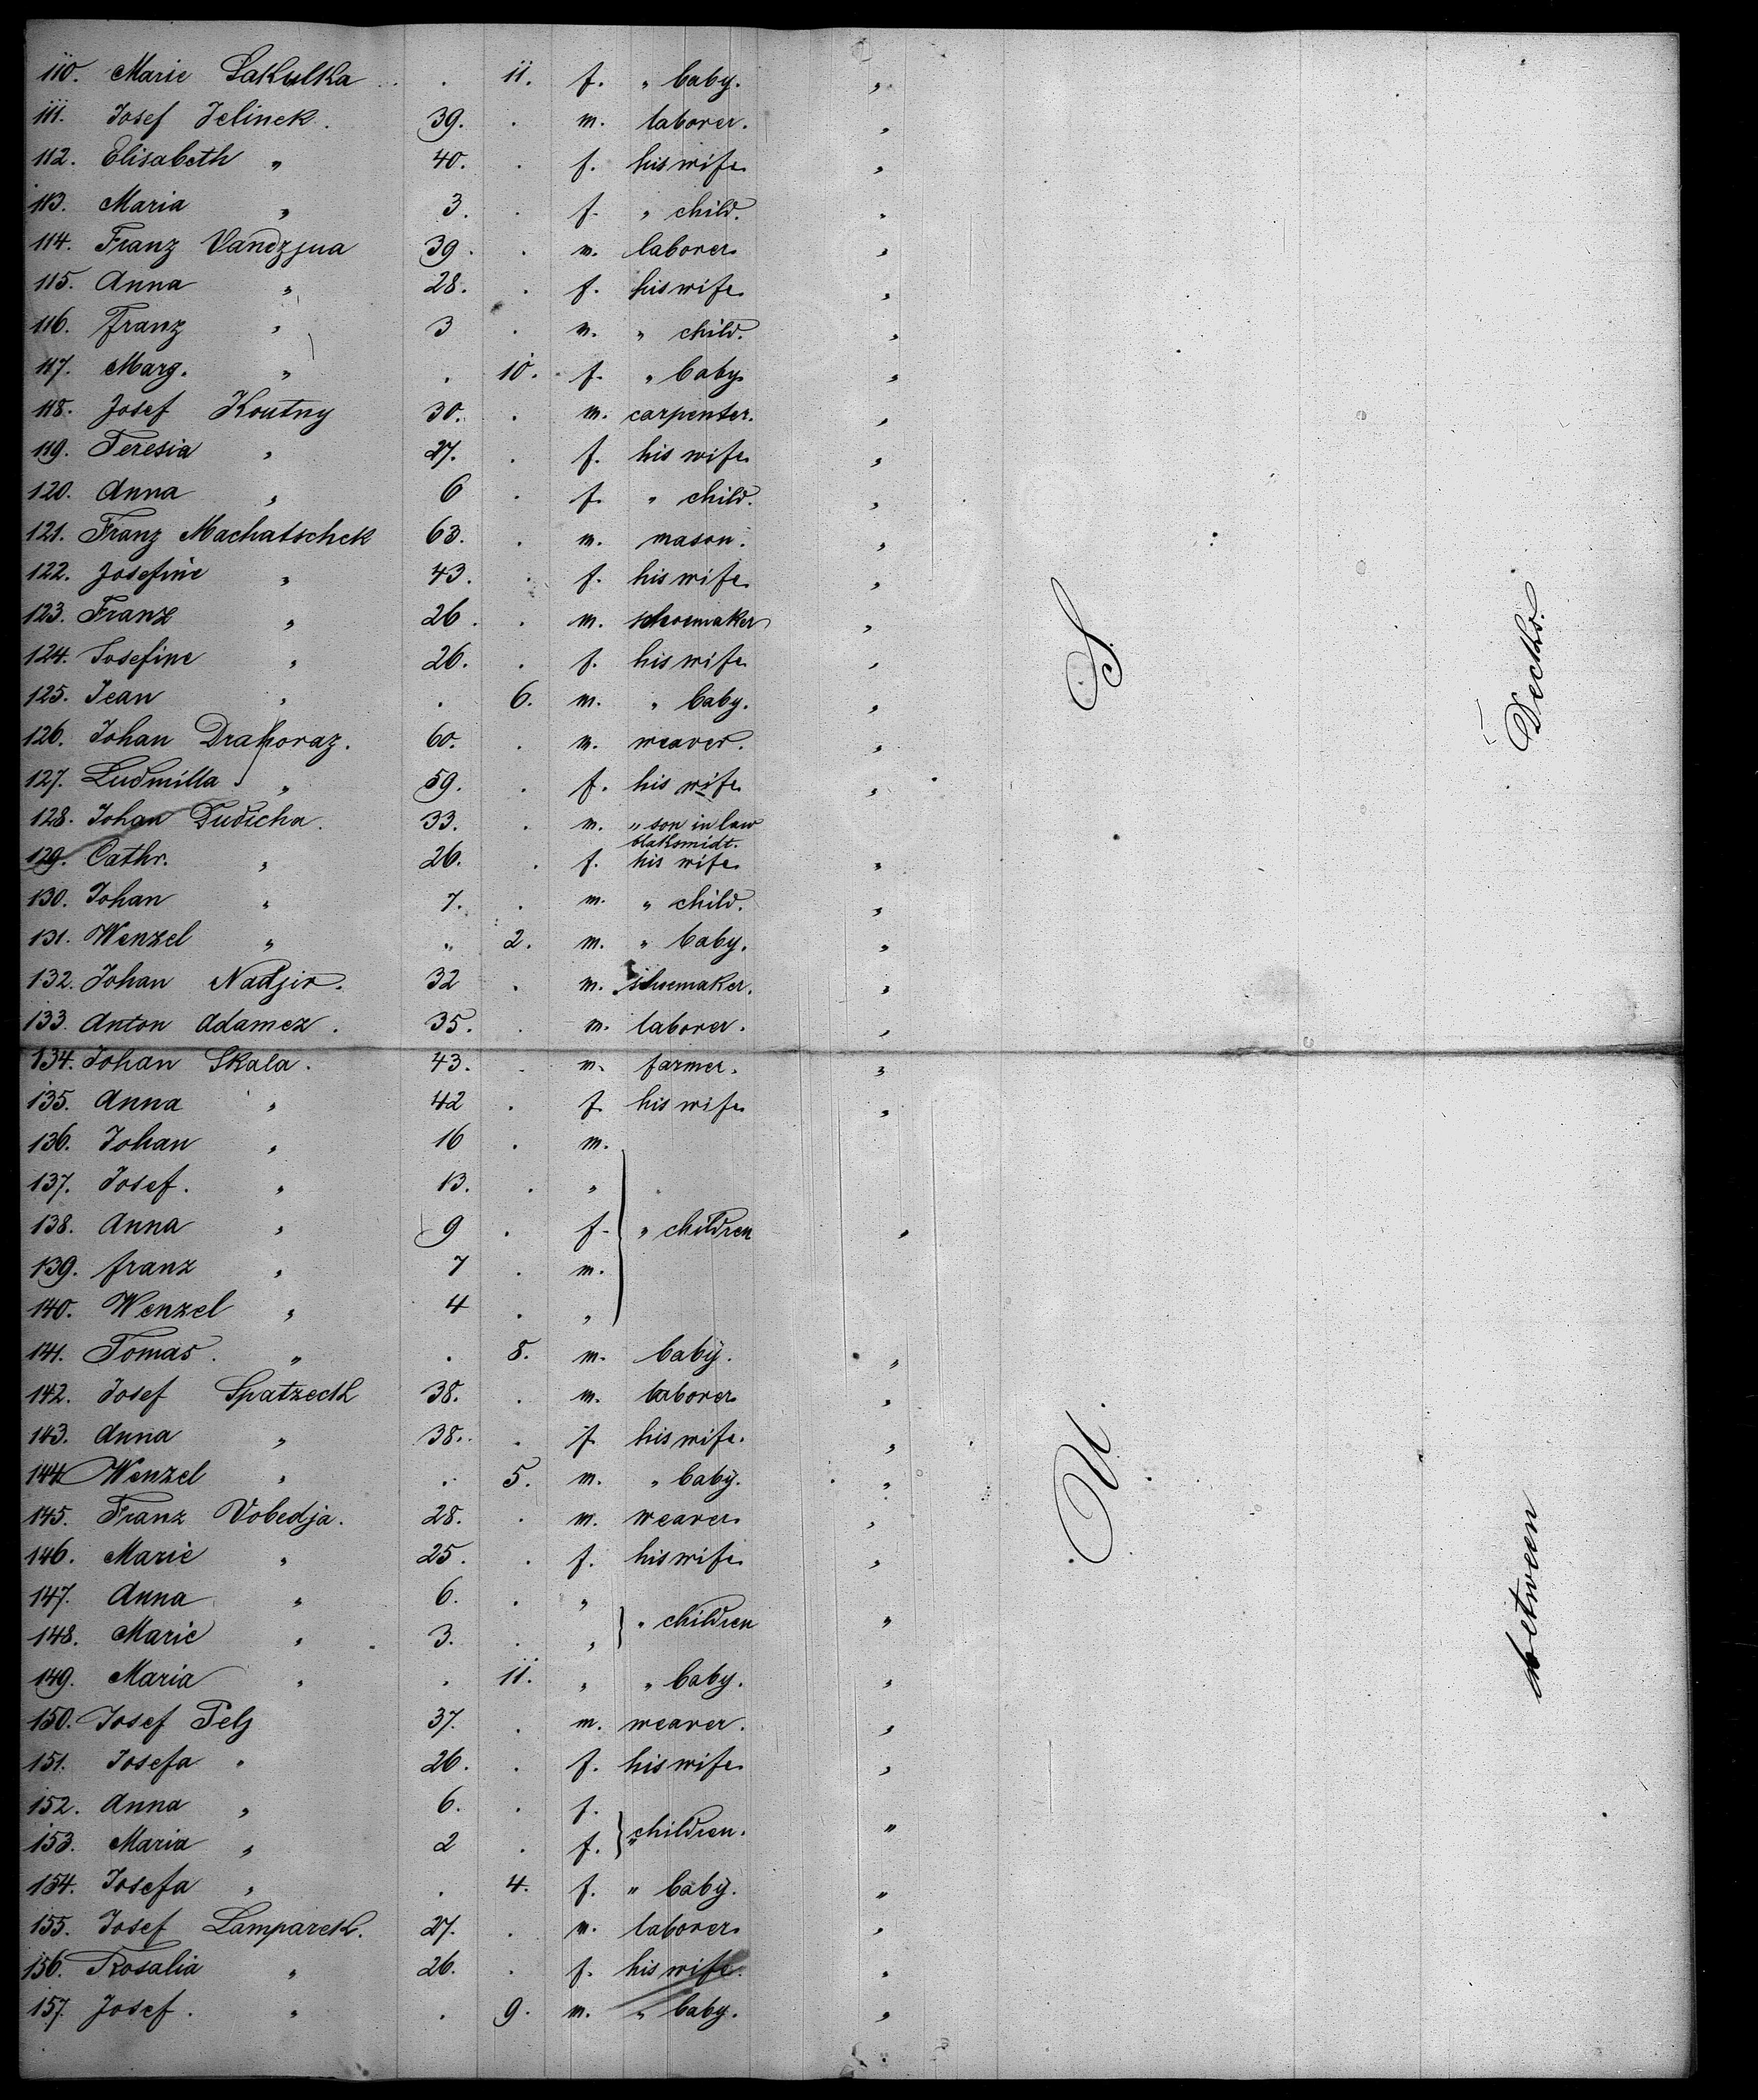 110. Marie Sakulka . 11. f. " baby. "
111. Josef Jelinek. 39. . m. laborer. "
112. Elisabeth " 40. . f. his wife "
113. Maria " 3. . f. " child. "
114. Franz Vandzjua 39. . m. laborer "
115. Anna " 28. . f. his wife "
116. Franz " 3 . m. " child. "
117. Marg. " . 10. f. " baby "
118. Josef Koutny 30. . m. carpenter. "
119. Teresia " 27. . f. his wife "
120. Anna " 6 . f. " child. "
121. Franz Machatschek 63. . m. mason. "
122. Josefine " 43. . f. his wife "
123. Franz " 26. . m. schoemaker "
124. Josefine " 26. . f. his wife "
125. Jean " . 6. m. " baby. "
126. Johan Drahoraz. 60. . m. weaver. "
127. Ludmilla " 59. . f. his wife "
128. Johan Dudicha. 33. . m. " son in law
blaksmidt.
129. Cathr. " 26. . f. his wife "
130. Johan " 7. . m. " child. "
131. Wenzel " " 2. m. " baby. "
132. Johan Nadjir. 32 . m. schuemaker. "
133. Anton Adamez. 35. . m. laborer. "
134. Johan Skala. 43. . m. farmer. "
135. Anna " 42 . f. his wife "
136. Johan " 16 . m.
137. Josef. " 13. . "
138. Anna " 9 . f. " children "
139. franz " 7 . m.
140. Wenzel " 4 . "
141. Tomas. " . 8. m. baby. "
142. Josef Spatzeck 38. . m. laborer "
143. Anna " 38. . f. his wife. "
144 Wenzel " . 5. m. " baby. "
145. Franz Vobedja. 28. . m. weaver "
146. Marie " 25. . f. his wife "
147. Anna " 6. . "
" children "
148. Marie " 3. . "
149. Maria " . 11. " " baby. "
150. Josef Pelz 37. . m. weaver. "
151. Josefa " 26. . f. his wife "
152. Anna " 6. . f.
" children. "
153. Maria " 2 . f.
154. Josefa " . 4. f. " baby. "
155. Josef Lampareck. 27. . m. laborer "
156. Rosalia " 26. . f. his wife. "
157. Josef. " . 9. m. " baby. "
U. S.
between Decks.